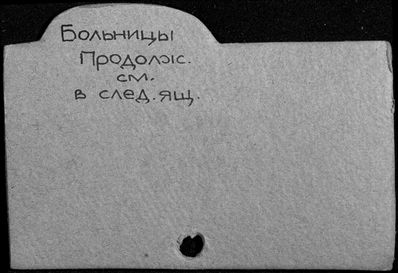 Больницы
Продолж.
см.
в след. ящ.